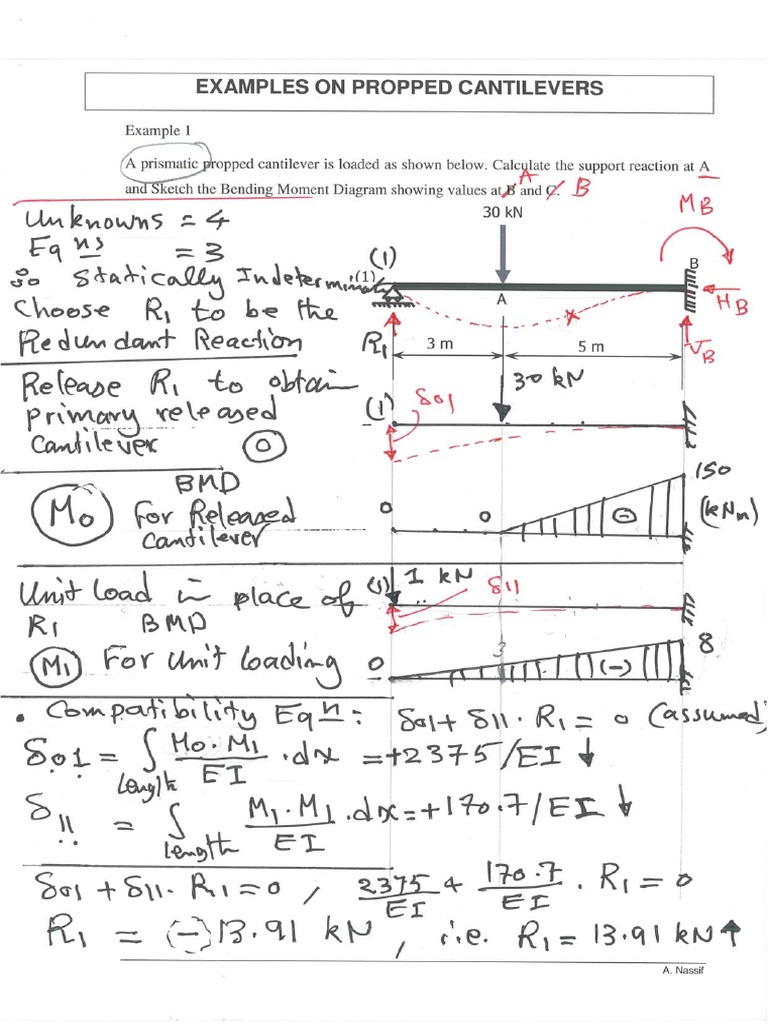 EXAMPLES ON PROPPED CANTILEVERS
Example 1
A prismatic propped cantilever is loaded as shown below. Calculate the support reaction at A
and Sketch the Bending Moment Diagram showing values at B and C.
A
B
Unknowns = 4
Eqns = 3
∴ Statically Indeterminate
Choose R1 to be the
Redundant Reaction
30 kN
MB
(1)
(1)
A
B
HB
R1
3 m
5 m
VB
Release R1 to obtain
primary released
cantilever (0)
30 kN
(1)
δ01
BMD
M0 For Released
cantilever
0
0
(-)
150
(kNm)
Unit load in place of
R1 BMD
M1 For Unit loading
(1)
1 kN
δ11
0
3
(-)
8
• Compatibility Eqn: δ01 + δ11 · R1 = 0 (assumed)
δ01 = ∫ M0 · M1 / EI · dx = +2375/EI ↓
Length
δ11 = ∫ M1 · M1 / EI · dx = +170.7/EI ↓
Length
δ01 + δ11 · R1 = 0 , 2375/EI + 170.7/EI · R1 = 0
R1 = (-) 13.91 kN , i.e. R1 = 13.91 kN ↑
A. Nassif